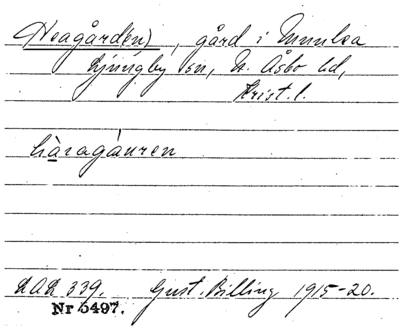 Heagården), gård i Munka
Ljungby sn, N. Åsbo hd,
Krist. l.
hàragá̊uren
LAL 339. Gust. Billing 1915-20.
Nr 5497.